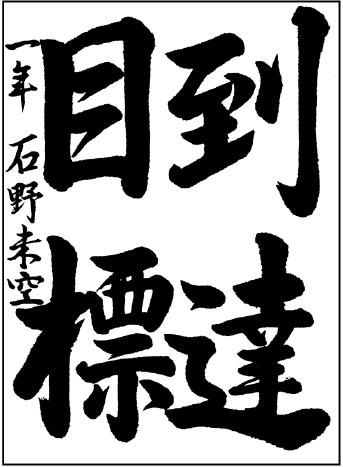 到達
目標
一年 石野未空